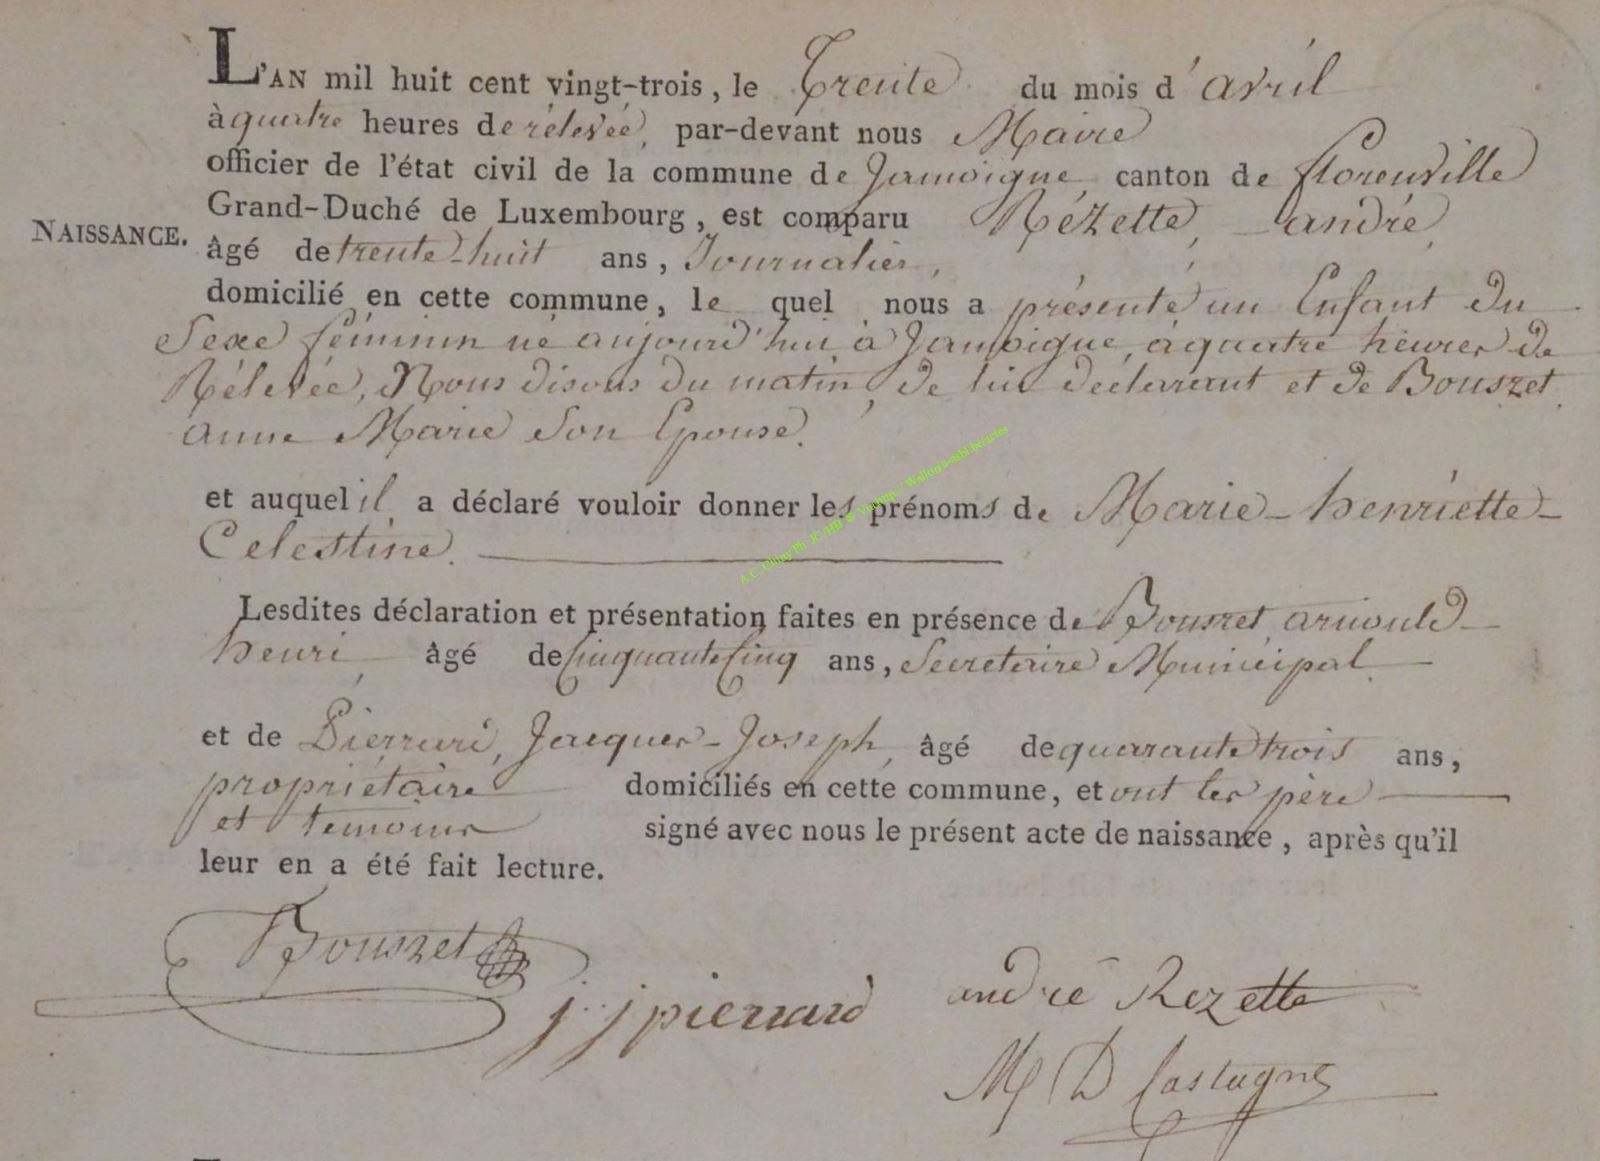 L'AN mil huit cent vingt-trois, le Trente du mois d'avril
à quatre heures de rélevée, par-devant nous Maire
officier de l'état civil de la commune de Jamoigne, canton de florenville
Grand-Duché de Luxembourg, est comparu Rézette, andré,
NAISSANCE.
âgé de trente-huit ans, Journalier,
domicilié en cette commune, le quel nous a présenté un Enfant du
Sexe féminin né aujourd'hui à Jamoigne, à quatre heures de
Rélevée, Nous disons du matin, de lui déclarant et de Bouszet
anne Marie Son Epouse.
et auquel il a déclaré vouloir donner les prénoms de Marie-henriette-
Celestine.
Lesdites déclaration et présentation faites en présence de Bouszet, arnould-
henri, âgé de Cinquante Cinq ans, Secretaire Municipal
et de Pierrard, Jacques-Joseph, âgé de quarante trois ans,
propriétaire domiciliés en cette commune, et ont les père
et temoins signé avec nous le présent acte de naissance, après qu'il
leur en a été fait lecture.
Bouszet
j. j pierrard
andré Rezette
M D Castagne